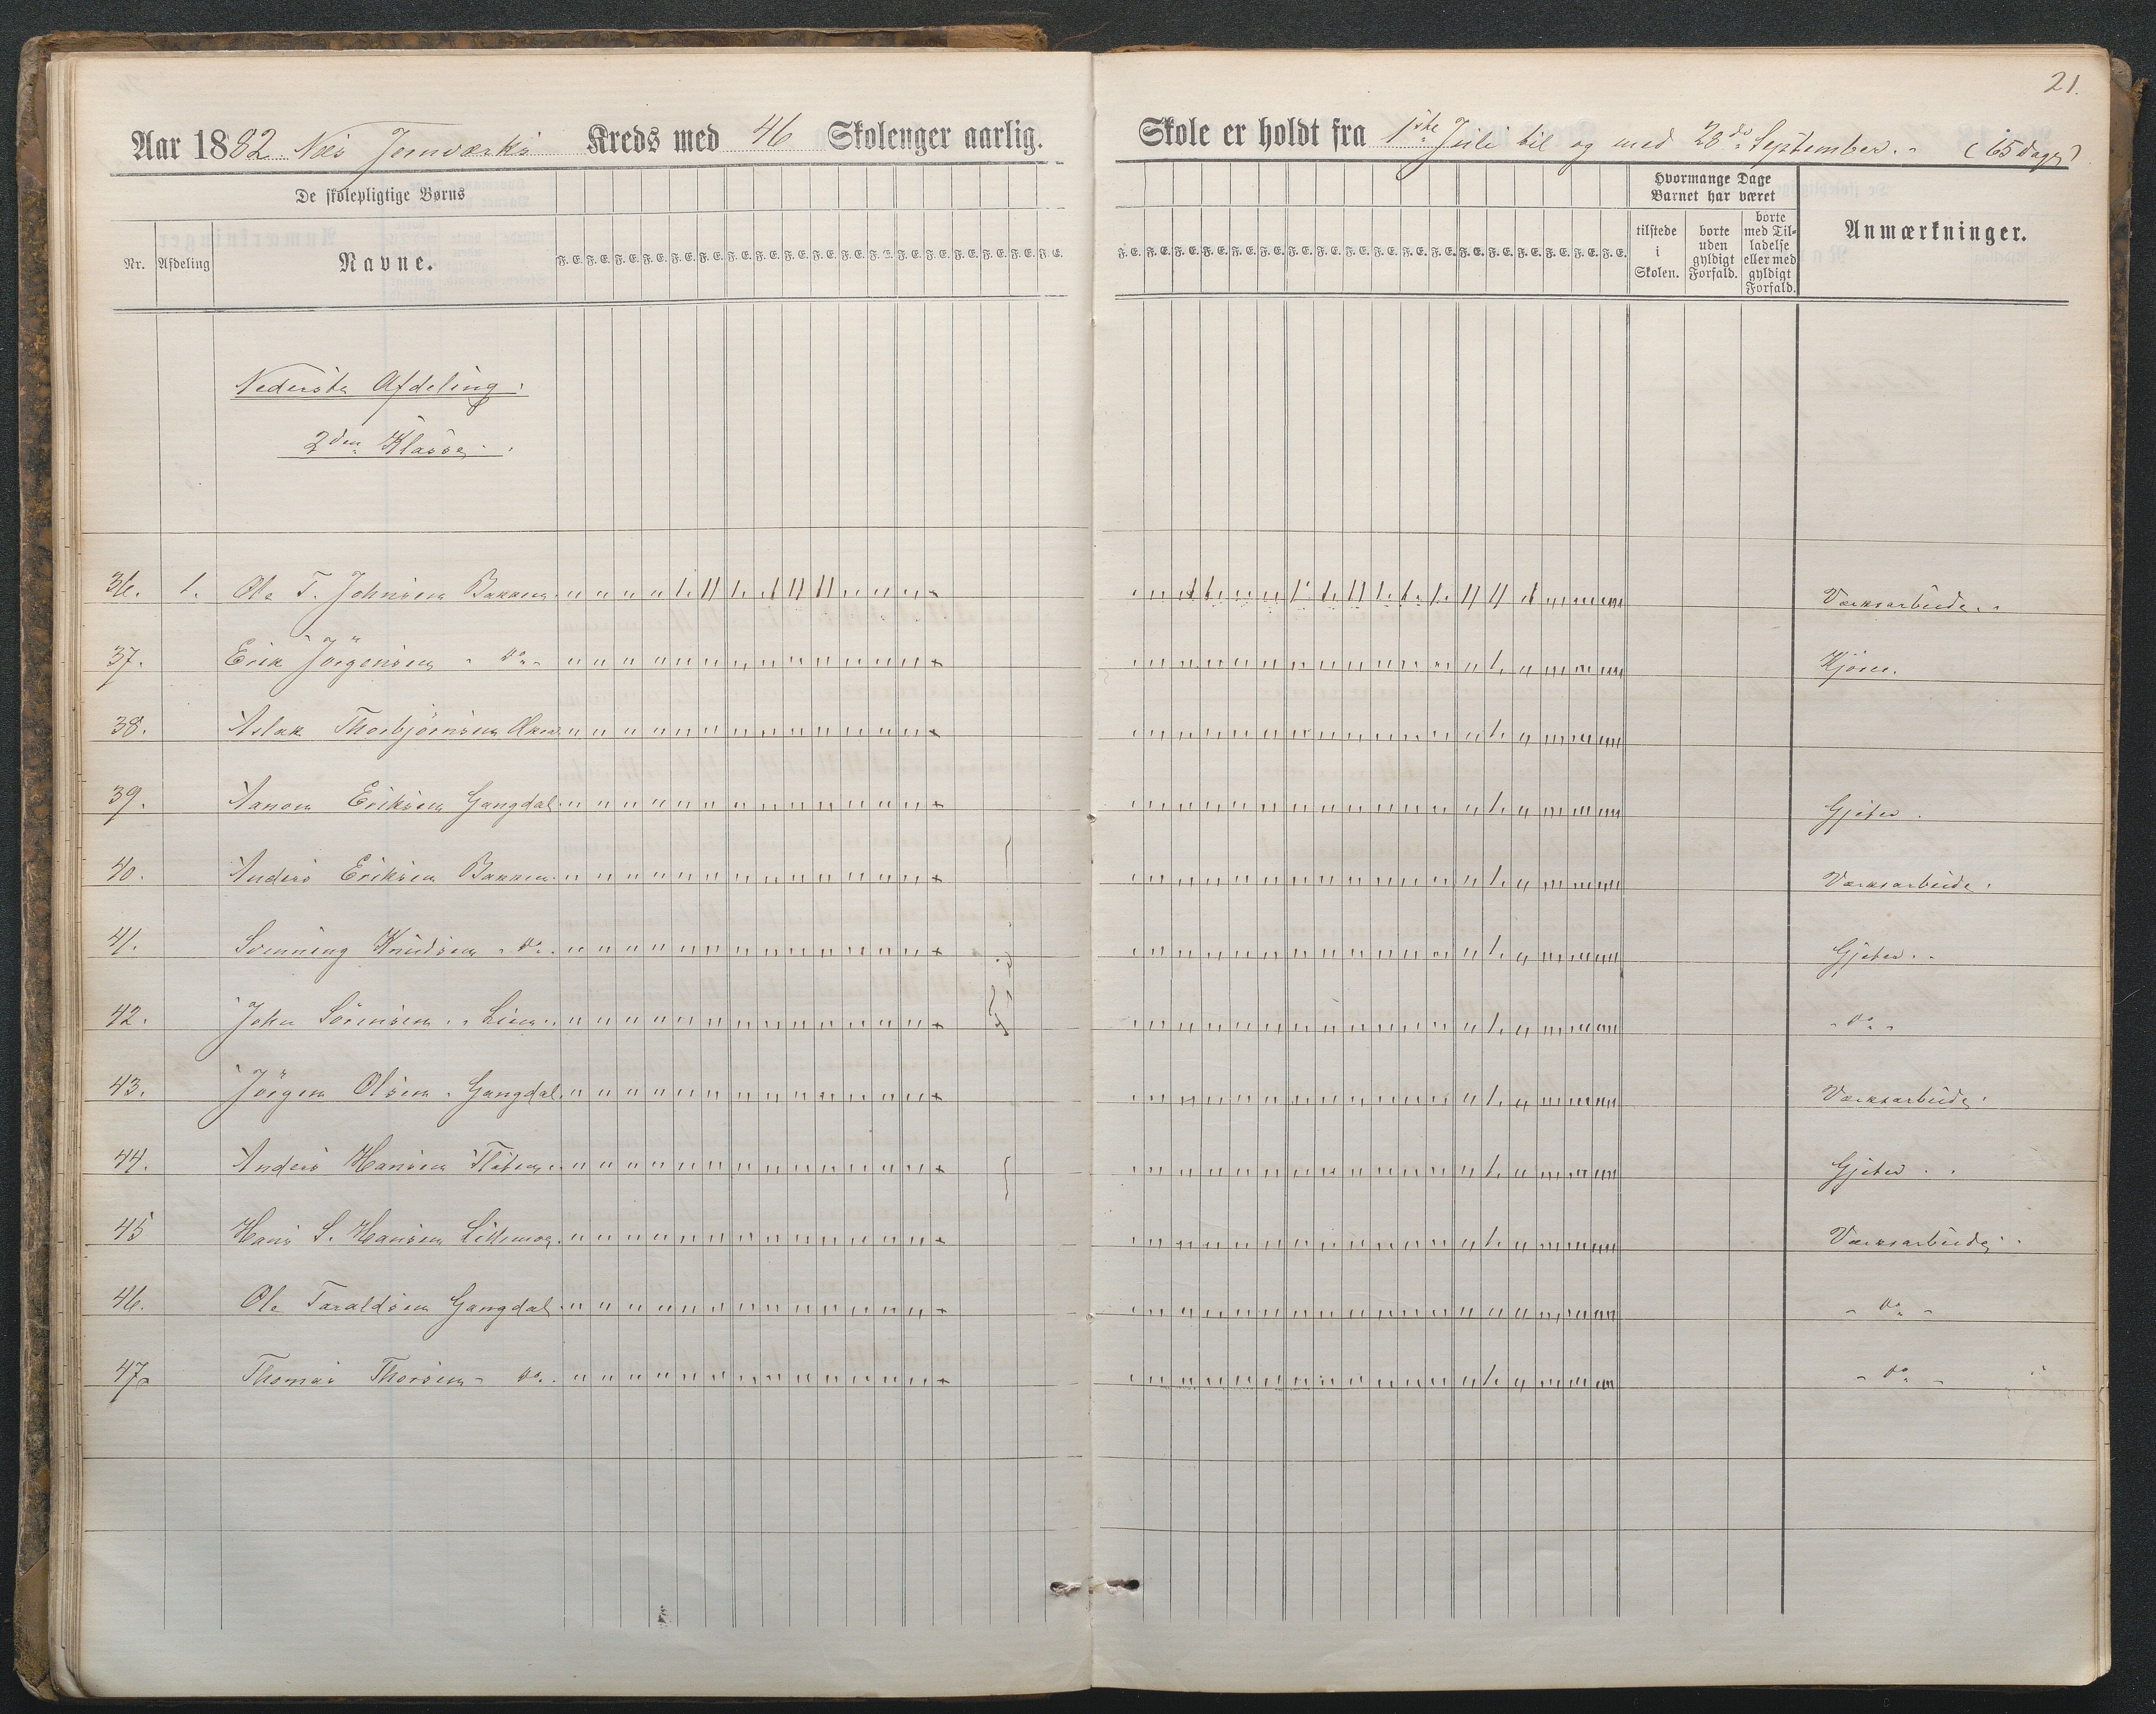 21.
Aar 1882 Næs Jernværks Kreds med 46 Skolenger aarlig. Skole er holdt fra 1ste Juli til og med 20de September. (65 dage)
De skolepligtige Børns
Hvormange Dage Barnet har været
Nr. Afdeling Navne.
tilstede i Skolen.
borte uden gyldigt Forfald.
borte med Tilladelse eller med gyldigt Forfald.
Anmærkninger.
Nederste Afdeling.
2den Klasse.
36. 1. Ole T. Johnsen Bakken Værksarbeide.
37. Erik Jörgensen do Hjem.
38. Aslak Thorbjörnsen
39. Eriksen Gangdal Gjeter.
40. Anders Eriksen Bakken Værksarbeide.
41. Svenning Knudsen do Gjeter.
42. John Sörensen Lien do
43. Jörgen Olsen Gangdal Værksarbeide.
44. Anders Hansen Gjeter.
45 Hans S. Hansen Værksarbeide.
46. Ole Taraldsen Gangdal do
47. Thomas Thorsen do do